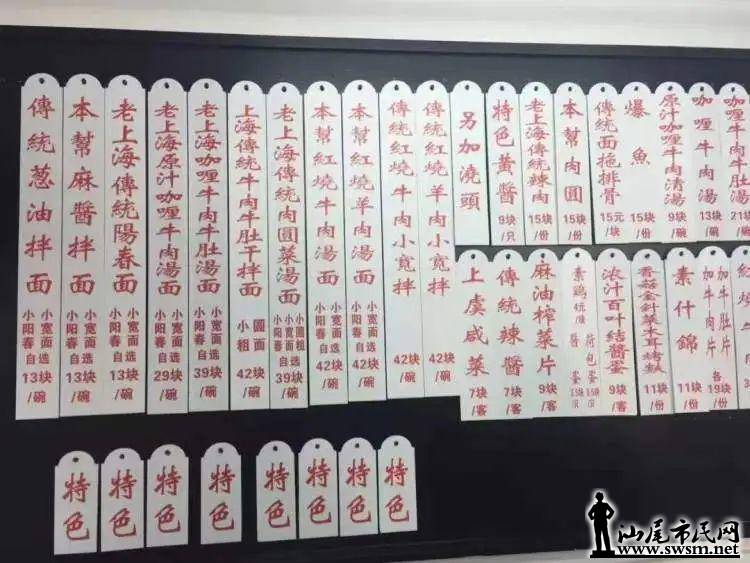 傳統葱油拌面
小宽面选
小阳春自
13块
/碗
本幫麻醬拌面
小宽面选
小阳春自
13块
/碗
老上海傳統陽春面
小宽面选
小阳春自
13块
/碗
老上海原汁咖喱牛肉湯面
小宽面选
小阳春自
29块
/碗
老上海咖喱牛肉牛肚湯面
小宽面选
小阳春自
39块
/碗
上海傳統牛肉牛肚干拌面
圆面
小粗
42块
/碗
老上海傳統肉圓菜湯面
小宽面选
小阳春自
39块
/碗
本幫紅燒牛肉湯面
小宽面选
小阳春自
42块
/碗
本幫紅燒羊肉湯面
小宽面选
小阳春自
42块
/碗
傳統紅燒牛肉小寬拌
42块
/碗
傳統紅燒羊肉小寬拌
42块
/碗
另加澆頭
特色黄醬
9块
/只
老上海傳統辣肉
15块
/份
本幫肉圓
15块
/份
傳統面拖排骨
15元
/块
爆魚
15块
/份
原汁咖喱牛肉清湯
9块
/碗
咖喱牛肉湯
13块
/碗
咖喱牛肉牛肚湯
21块
/碗
上虞咸菜
7块
/客
傳統辣醬
7块
/客
麻油榨菜片
9块
/客
素鷄
醬蛋
荷包蛋
浓汁百叶结醬蛋
9块
/客
香菇金針菜木耳烤麩
11块
/份
素什錦
11块
/份
加牛肚片
加牛肉片
各
19块
/份
特色
特色
特色
特色
特色
特色
特色
特色
汕尾市民网
www.swsm.net